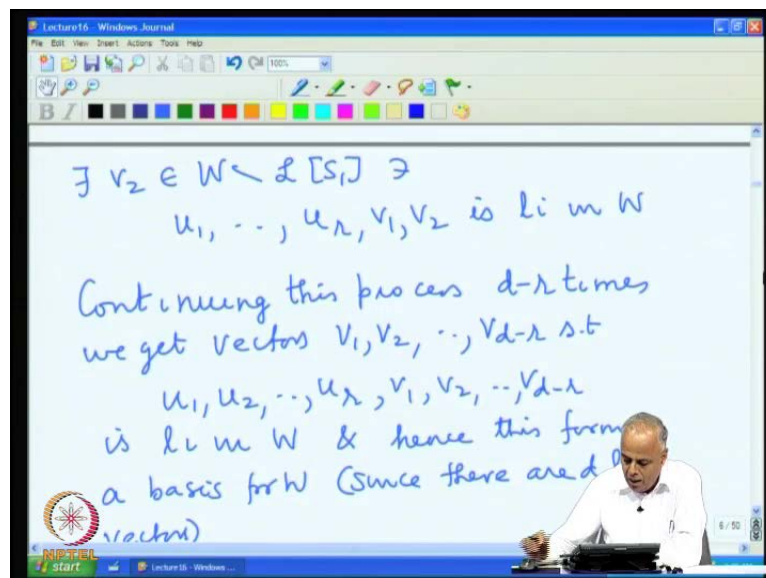 Lecture16 - Windows Journal
File Edit View Insert Actions Tools Help
100%
B I
∃ v₂ ∈ W \ ℒ [S₁] ∋
u₁, ..., uᵣ, v₁, v₂ is li in W
Continuing this process d-r times
we get vectors v₁, v₂, .., v_{d-r} s.t
u₁, u₂, .., uᵣ, v₁, v₂, .., v_{d-r}
is li in W & hence this form
a basis for W (since there are d
vectors)
6 / 50
NPTEL
start Lecture16 - Windows ...